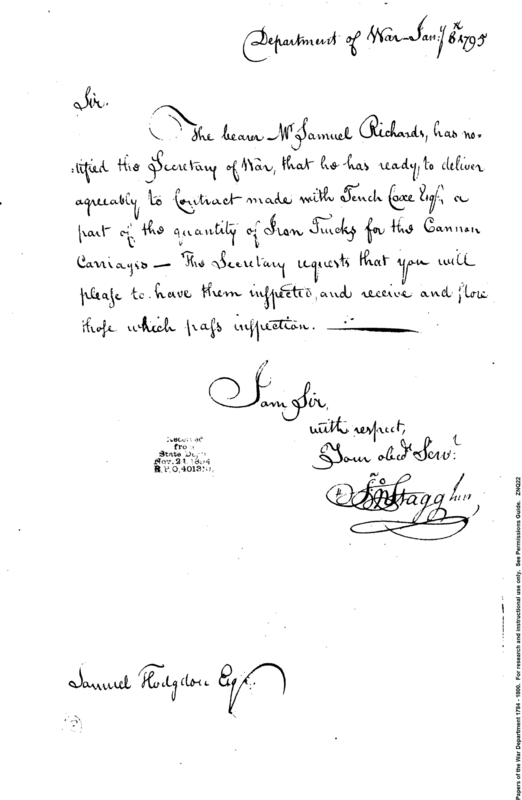 Department of War Jany. 8th 1795
Sir.
The bearer Mr Samuel Richards, has no-
-tified the Secretary of War, that he has ready, to deliver
agreeably to Contract made with Tench Coxe Esqr, a
part of the quantity of Iron Trucks for the Cannon
Carriages — The Secretary requests that you will
please to have them inspected, and receive and store
those which pass inspection. —
I am Sir,
with respect,
Your obedt Servt
Jno Stagg Junr,
Received
from
State Dept
Nov. 21, 1894
R.P.O,
Samuel Hodgdon Esqr.
Papers of the War Department 1784 - 1800. For research and instructional use only. See Permissions Guide. ZNQ22